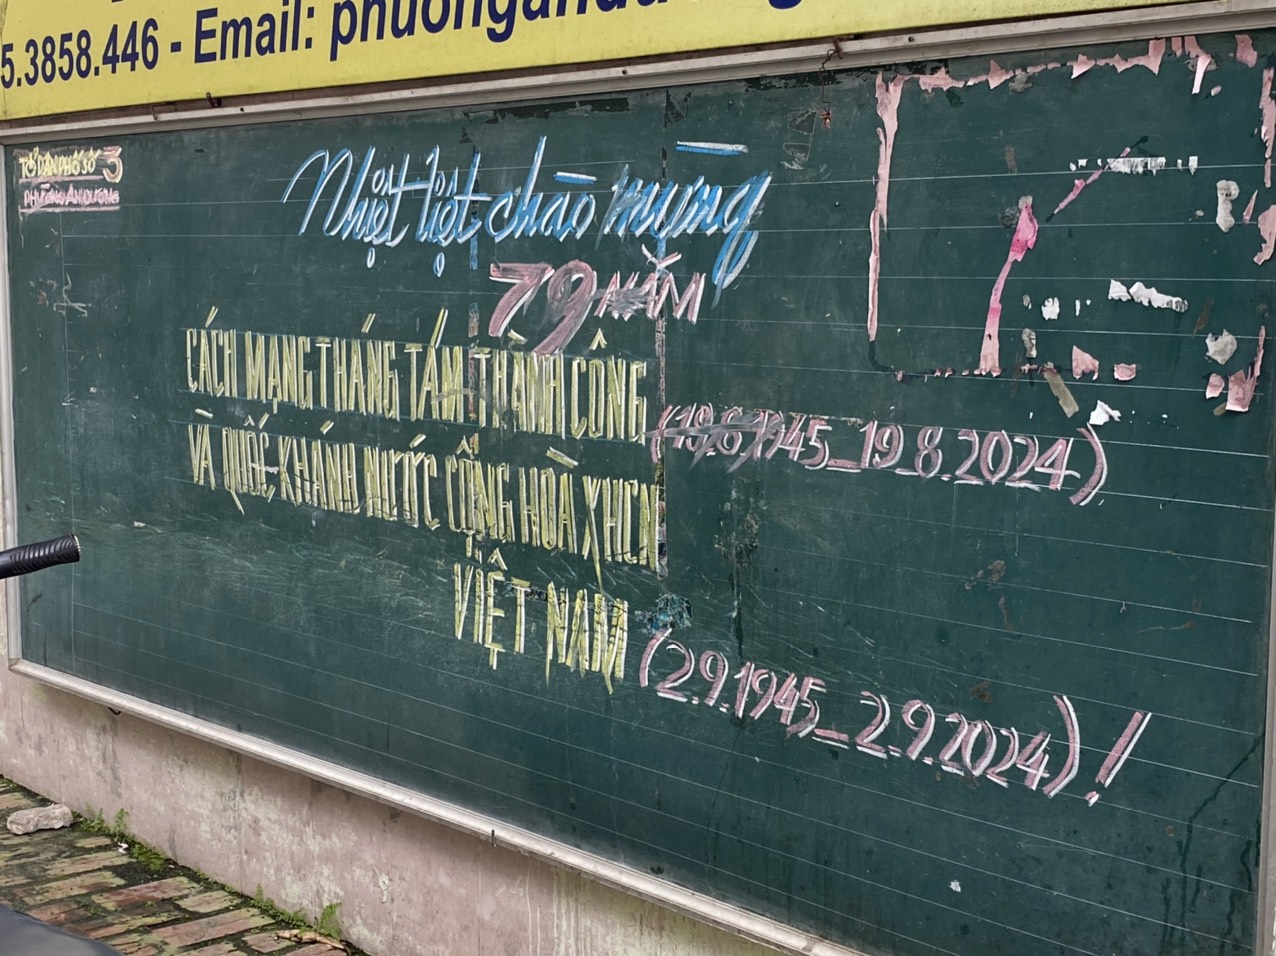 5.3858.446 - Email:
TỔ DÂN PHỐ SỐ 3
PHƯỜNG AN DƯƠNG
Nhiệt liệt chào mừng
79 NĂM
CÁCH MẠNG THÁNG TÁM THÀNH CÔNG (19.8.1945_19.8.2024)
VÀ QUỐC KHÁNH NƯỚC CỘNG HÒA XHCN
VIỆT NAM (2.9.1945_2.9.2024)!